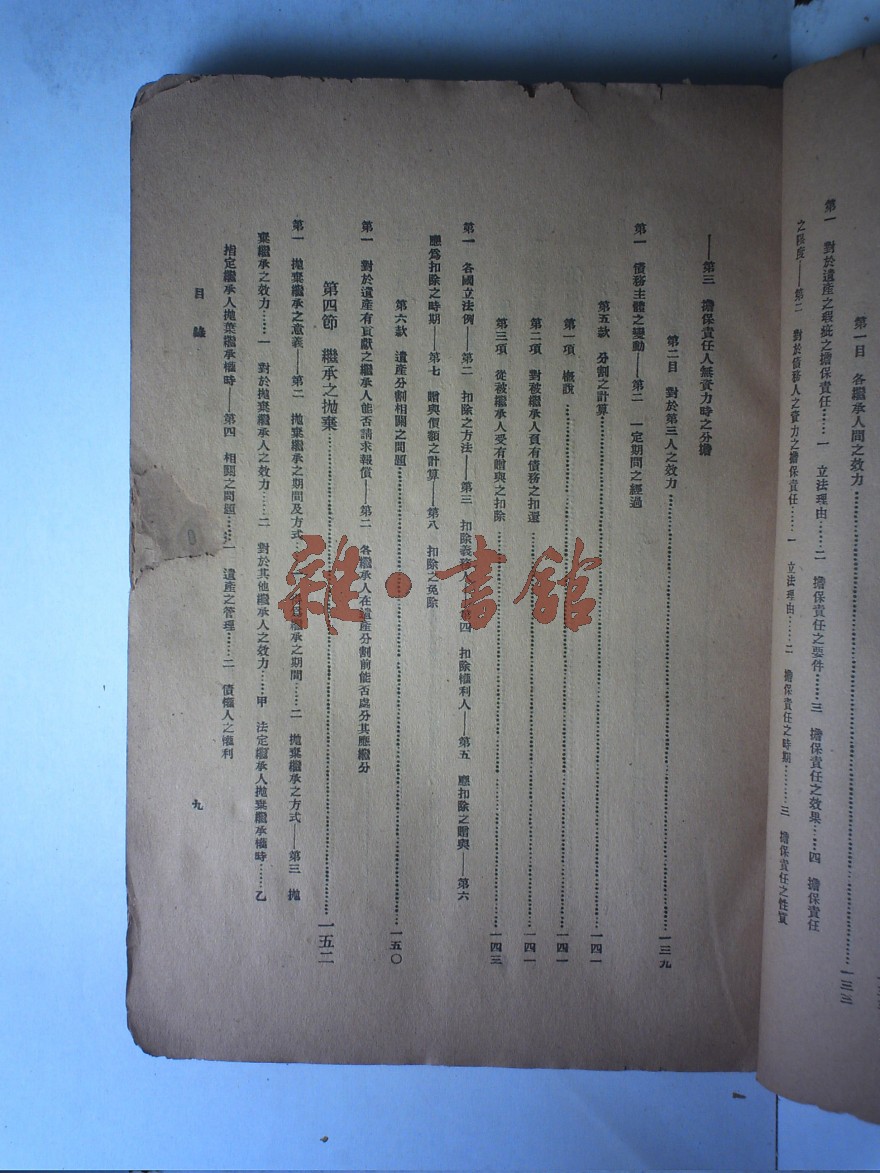 第一目　各繼承人間之效力……一三三
第一　對於遺產之瑕疵之擔保責任……一　立法理由……二　擔保責任之要件……三　擔保責任之效果……四　擔保責任
之限度——第二　對於債務人之資力之擔保責任……一　立法理由……二　擔保責任之時期……三　擔保責任之性質
——第三　擔保責任人無資力時之分擔
第二目　對於第三人之效力……一三九
第一　債務主體之變動——第二　一定期間之經過
第五款　分割之計算……一四一
第一項　概說……一四一
第二項　對被繼承人負有債務之扣還……一四一
第三項　從被繼承人受有贈與之扣除……一四三
第一　各國立法例——第二　扣除之方法——第三　扣除義務人　第四　扣除權利人——第五　應扣除之贈與——第六
應為扣除之時期——第七　贈與價額之計算——第八　扣除之免除
第六款　遺產分割相關之問題……一五〇
第一　對於遺產有貢獻之繼承人能否請求報償——第二　各繼承人在遺產分割前能否處分其應繼分
第四節　繼承之拋棄……一五二
第一　拋棄繼承之意義——第二　拋棄繼承之期間及方式　繼承之期間……二　拋棄繼承之方式——第三　拋
棄繼承之效力……一　對於拋棄繼承人之效力……二　對於其他繼承人之效力……甲　法定繼承人拋棄繼承權時……乙
指定繼承人拋棄繼承權時——第四　相關之問題……一　遺產之管理……二　債權人之權利
目錄
九
雜·書館